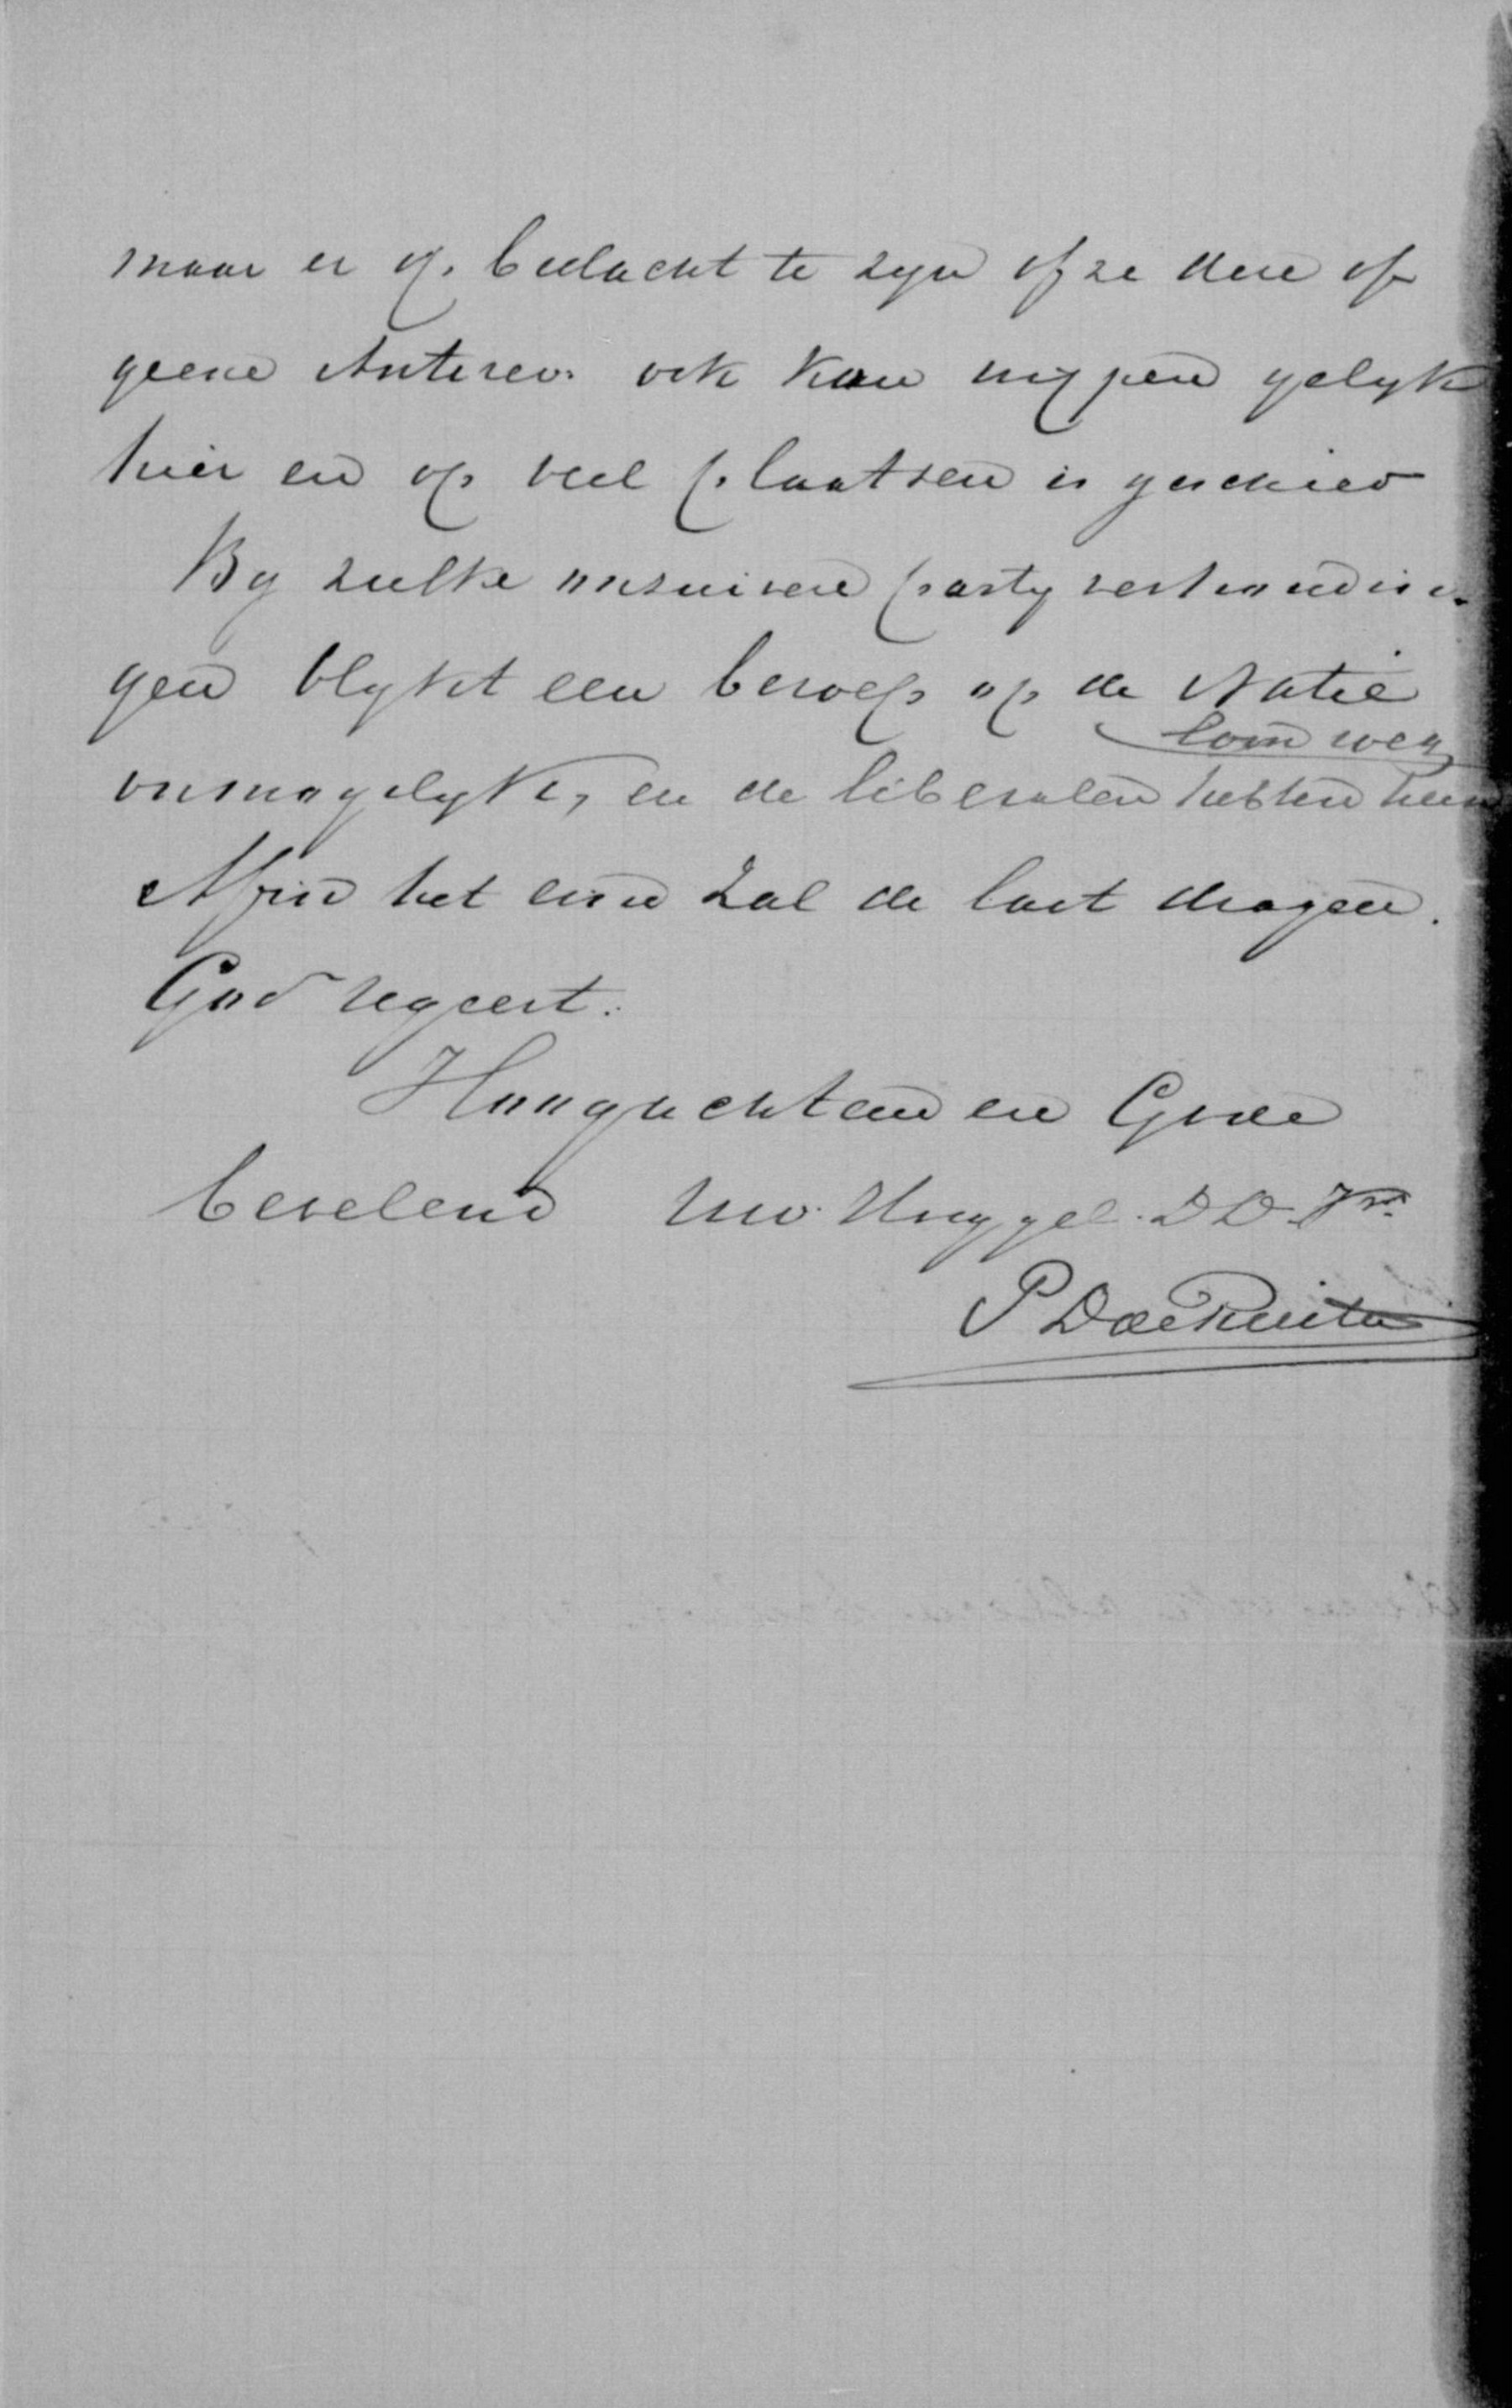 maar er op bedacht te zyn of ze deze of
geene Antirev. ook kan nypen gelyk
hier en op veel plaatsen is geschied
By zulke onzuivere partyverhoudin-
gen blykt een beroep op de Natie
onmogelyk, en de liberalen hebben hun
loon weg
Afin het eind zal de last dragen.
God regeert.
Hoogachtend en Gode
bevelend Uw. Hooggel. D D. Vr.
P D de Ruiter